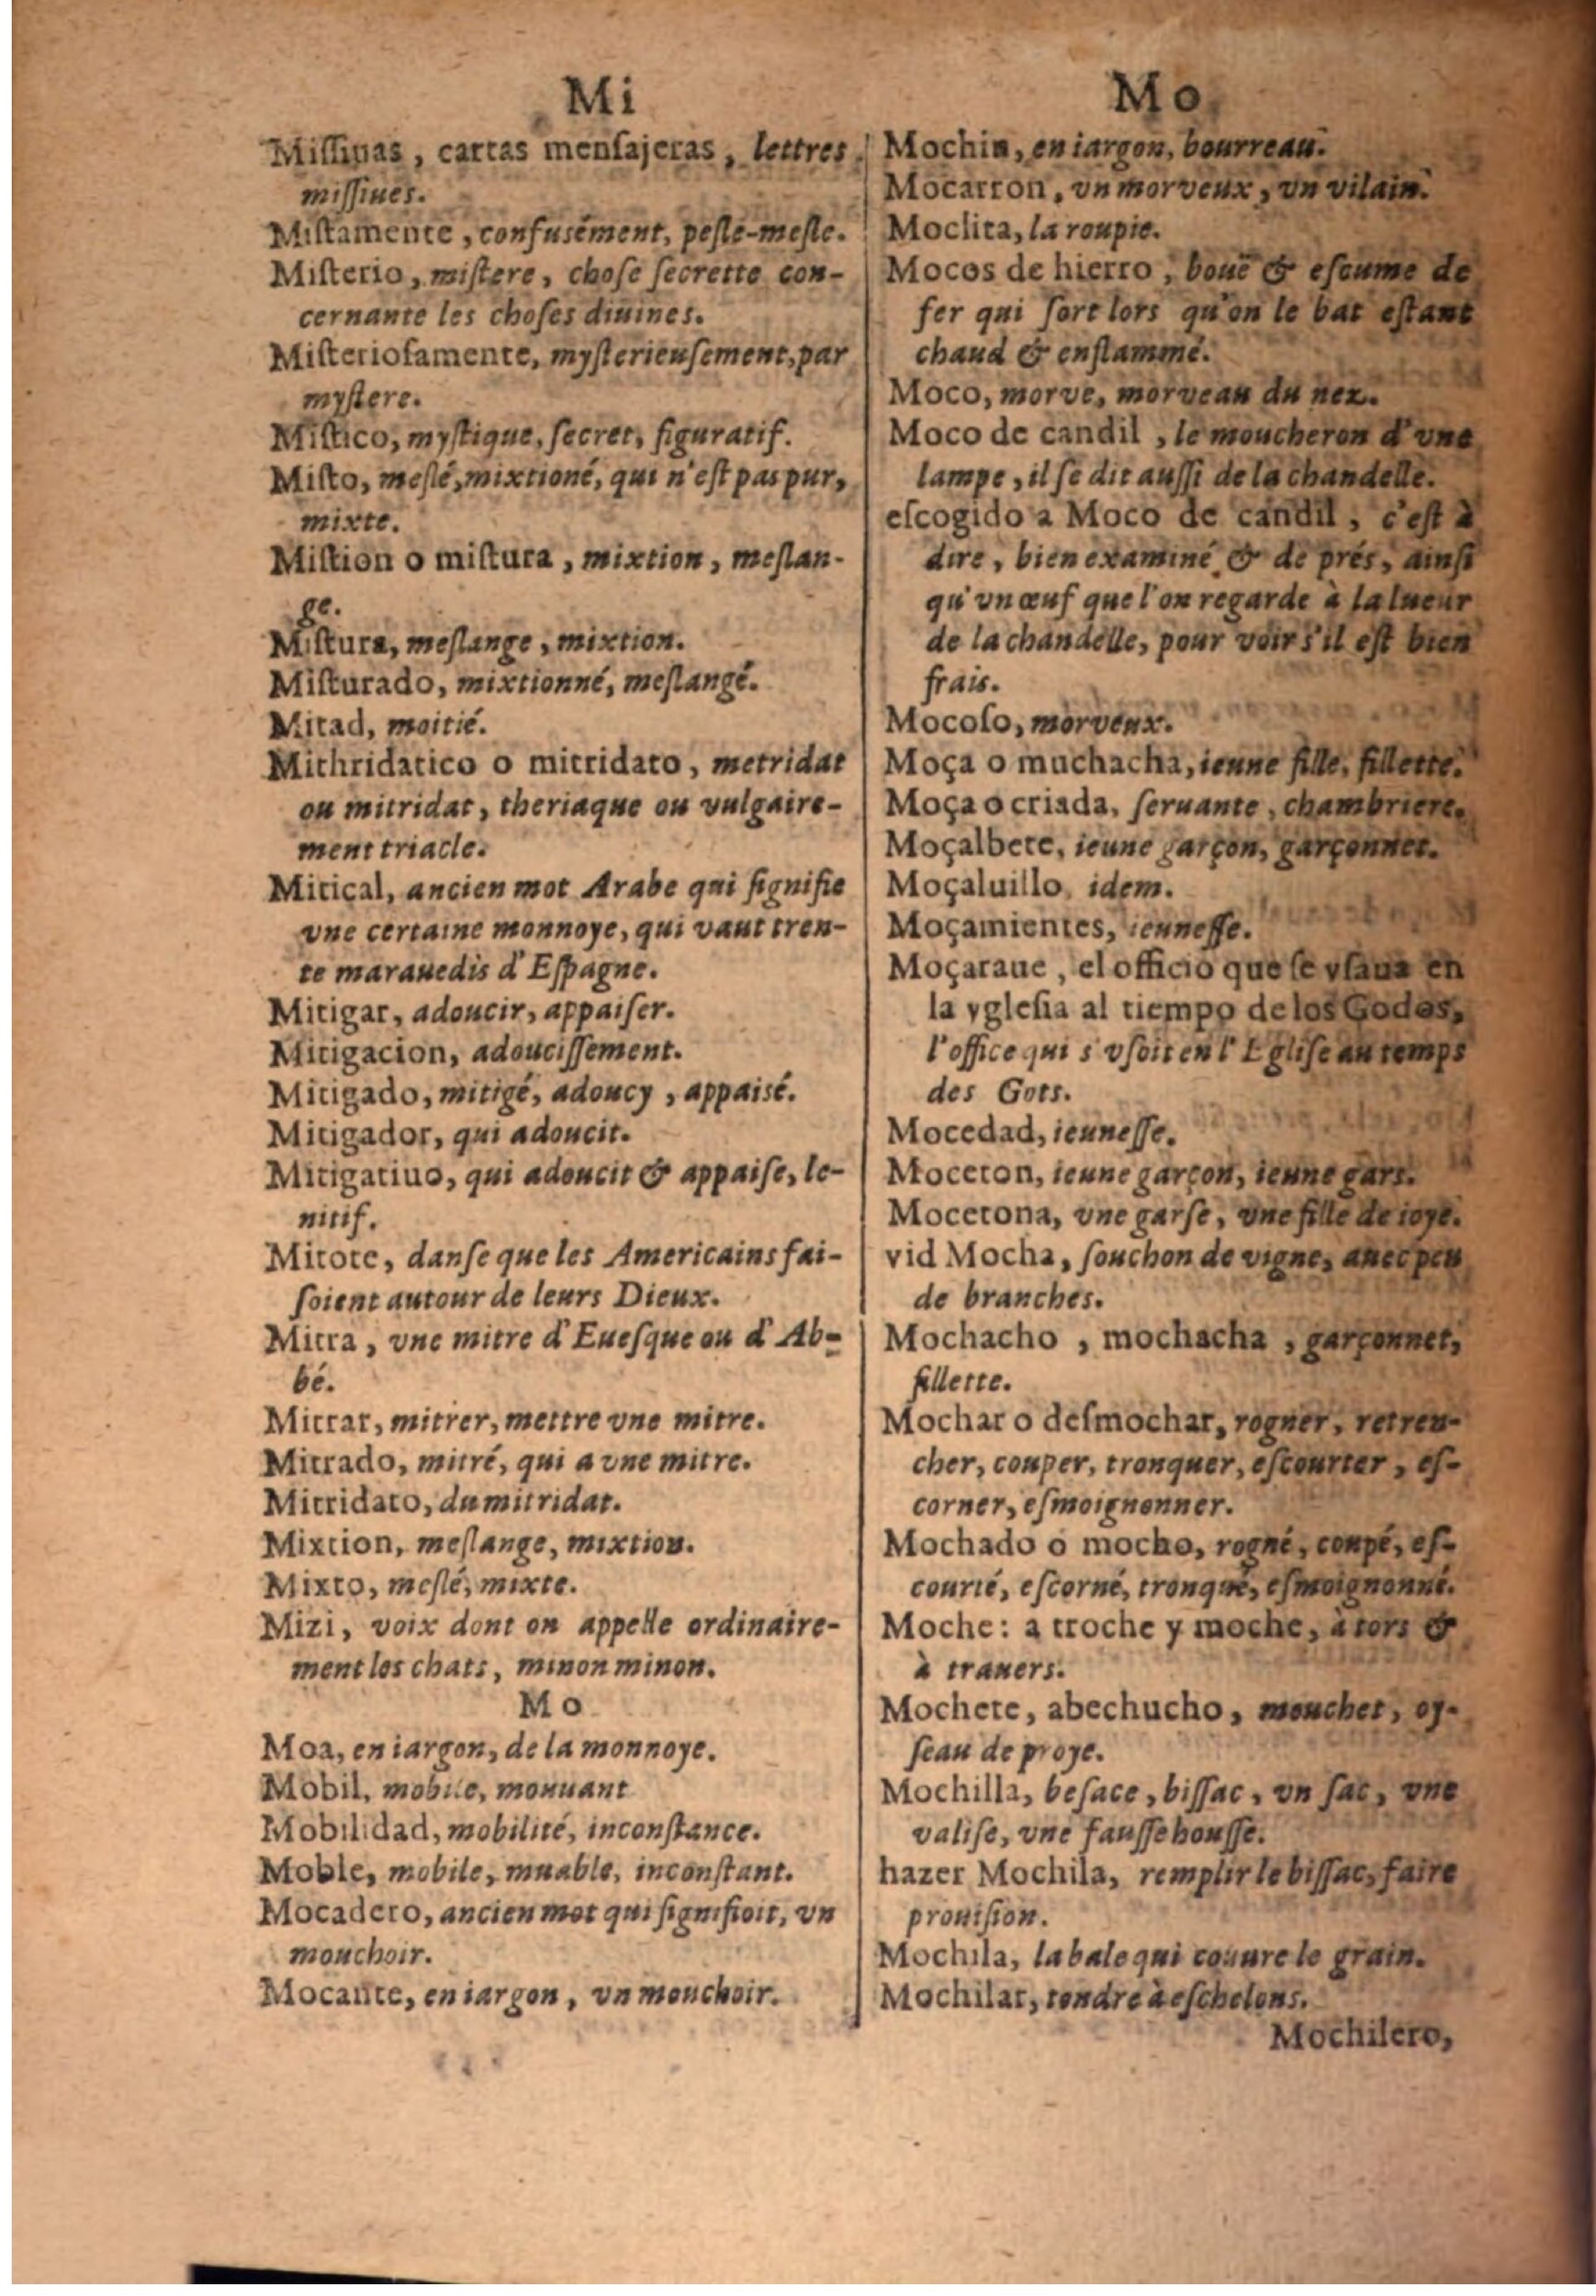 Mi
Miſſiuas, cartas menſajeras, lettres
miſſiues.
Miſtamente, confusément, peſle-meſle.
Miſterio, miſtere, choſe ſecrette con-
cernante les choſes diuines.
Miſterioſamente, myſterieuſement, par
myſtere.
Miſtico, myſtique, ſecret, figuratif.
Miſto, meſlé, mixtioné, qui n'eſt pas pur,
mixte.
Miſtion o miſtura, mixtion, meſlan-
ge.
Miſtura, meſlange, mixtion.
Miſturado, mixtionné, meſlangé.
Mitad, moitié.
Mithridatico o mitridato, metridat
ou mitridat, theriaque ou vulgaire-
ment triacle.
Mitical, ancien mot Arabe qui ſignifie
vne certaine monnoye, qui vaut tren-
te marauedis d'Eſpagne.
Mitigar, adoucir, appaiſer.
Mitigacion, adouciſſement.
Mitigado, mitigé, adoucy, appaisé.
Mitigador, qui adoucit.
Mitigatiuo, qui adoucit & appaiſe, le-
nitif.
Mitote, danſe que les Americains fai-
ſoient autour de leurs Dieux.
Mitra, vne mitre d'Eueſque ou d'Ab-
bé.
Mitrar, mitrer, mettre vne mitre.
Mitrado, mitré, qui a vne mitre.
Mitridato, du mitridat.
Mixtion, meſlange, mixtion.
Mixto, meſlé, mixte.
Mizi, voix dont on appelle ordinaire-
ment les chats, minon minon.
Mo
Moa, en iargon, de la monnoye.
Mobil, mobile, mouuant
Mobilidad, mobilité, inconſtance.
Moble, mobile, muable, inconſtant.
Mocadero, ancien mot qui ſignifioit, vn
mouchoir.
Mocante, en iargon, vn mouchoir.
Mo
Mochin, en iargon, bourreau.
Mocarron, vn morveux, vn vilain.
Moclita, la roupie.
Mocos de hierro, bouë & eſcume de
fer qui ſort lors qu'on le bat eſtant
chaud & enflammé.
Moco, morve, morveau du nez.
Moco de candil, le moucheron d'vne
lampe, il ſe dit auſſi de la chandelle.
eſcogido a Moco de candil, c'eſt à
dire, bien examiné & de prés, ainſi
qu'vn œuf que l'on regarde à la lueur
de la chandelle, pour voir s'il eſt bien
frais.
Mocoſo, morveux.
Moça o muchacha, ieune fille, fillette.
Moça o criada, ſeruante, chambriere.
Moçalbete, ieune garçon, garçonnet.
Moçaluillo, idem.
Moçamientes, ieuneſſe.
Moçaraue, el officio que ſe vſaua en
la ygleſia al tiempo de los Godos,
l'office qui s'vſoit en l'Egliſe au temps
des Gots.
Mocedad, ieuneſſe.
Moceton, ieune garçon, ieune gars.
Mocetona, vne garſe, vne fille de ioye.
vid Mocha, ſouchon de vigne, auec peu
de branches.
Mochacho, mochacha, garçonnet,
fillette.
Mochar o deſmochar, rogner, retren-
cher, couper, tronquer, eſcourter, eſ-
corner, eſmoignonner.
Mochado o mocho, rogné, coupé, eſ-
courté, eſcorné, tronqué, eſmoignonné.
Moche: a troche y moche, à tors &
à trauers.
Mochete, abechucho, mouchet, oy-
ſeau de proye.
Mochilla, beſace, biſſac, vn ſac, vne
valiſe, vne fauſſe houſſe.
hazer Mochila, remplir le biſſac, faire
prouiſion.
Mochila, la bale qui couure le grain.
Mochilar, tondre à eſchelons.
Mochilero,